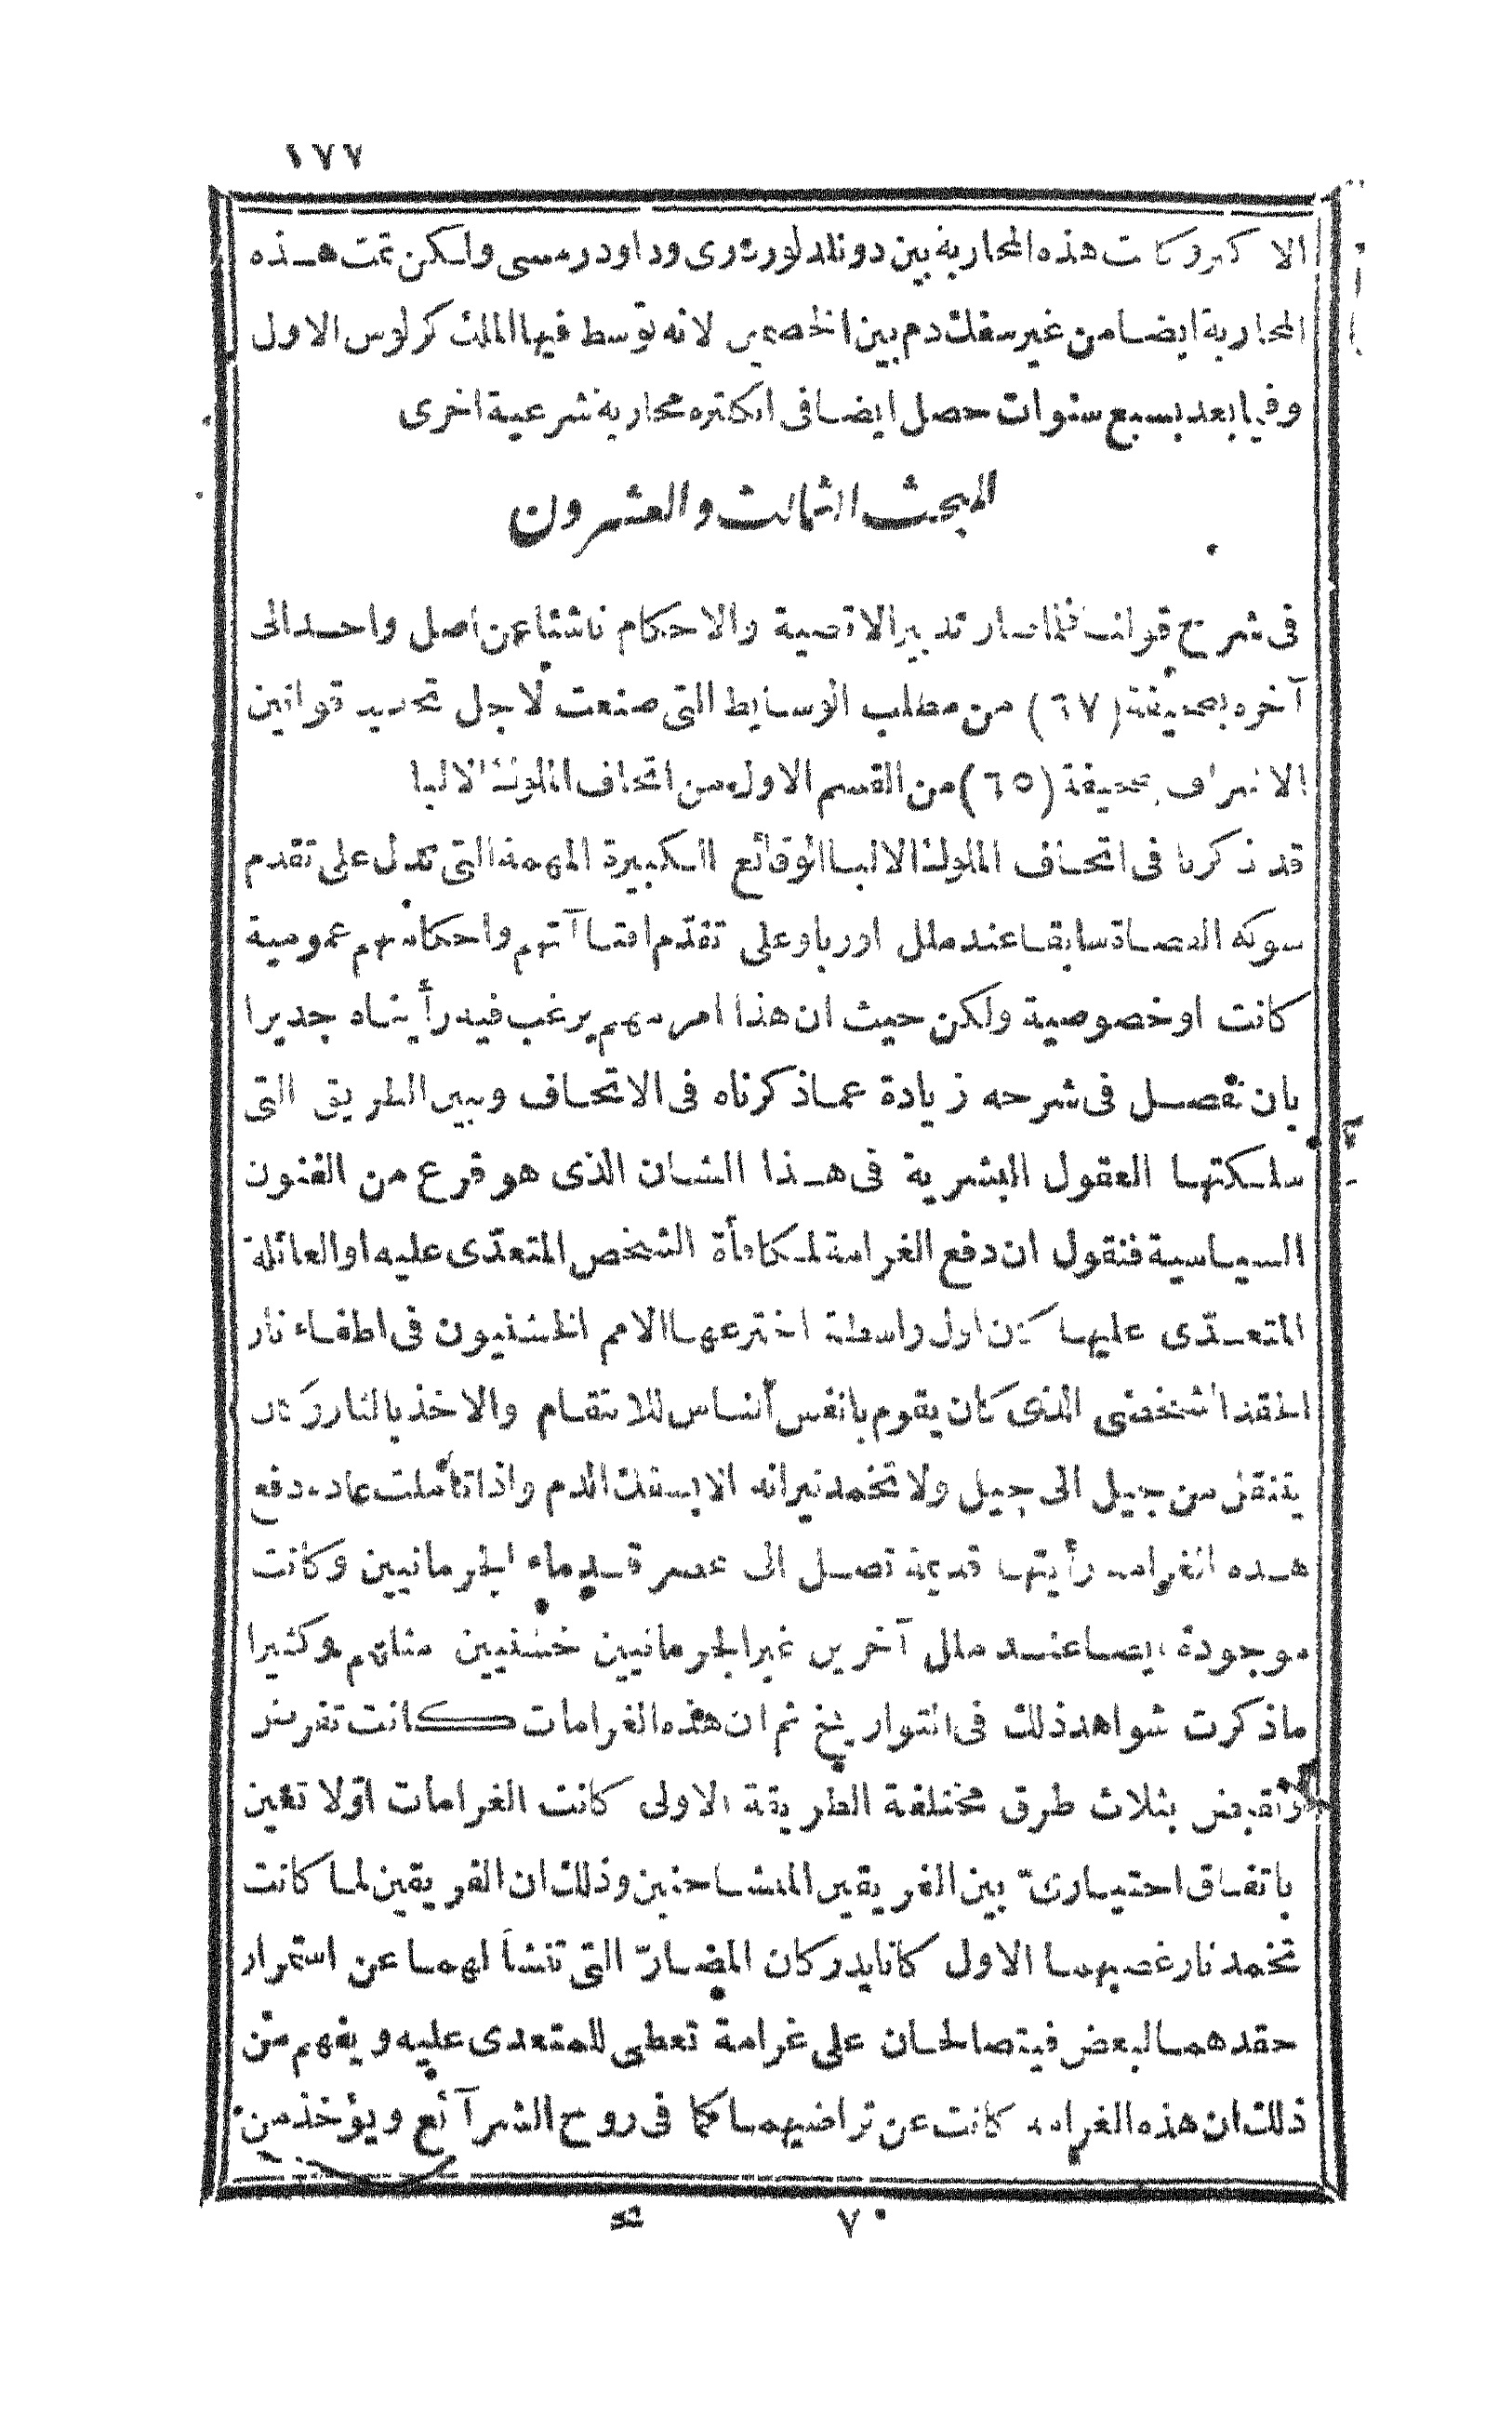 ١٧٧
الاكبر وكانت هذه المحاربة بين دونلد لورثورى وداود رمسى ولكن تمت هذه
المحاربة ايضا من غير سفك دم بين الخصمين لانه توسط فيها الملك كرلوس الاول
وفيما بعد بسبع سنوات حصل ايضا فى انكلتره محاربة شرعية اخرى
المبحث الثالث والعشرون
فى شرح قولنا فلما صار تدبير الاقضية والاحكام ناشئا عن اصل واحد الى
آخره بصحيفة (٦٧) من مطلب الوسايط التى صنعت لاجل تحديد قوانين
الاشراف بصحيفة (٦٥) من القسم الاول من اتحاف الملوك الالبا
قد ذكرنا فى اتحاف الملوك الالبا الوقائع الكبيرة المهمة التى تدل على تقدم
شوكة القضاة سابقا عند ملل اوربا وعلى تقدّم اقضا آتهم واحكامهم عمومية
كانت او خصوصية ولكن حيث ان هذا امر مهم يرغب فيه رأيناه جديرا
بان نفصل فى شرحه زيادة عما ذكرناه فى الاتحاف ونبين الطريق التى
سلكتها العقول البشرية فى هذا الشان الذى هو فرع من الفنون
السياسية فنقول ان دفع الغرامة لمكافأة الشخص المتعدّى عليه او العائلة
المتعدّى عليها كان اول واسطة اخترعها الامم الخشنيون فى اطفاء نار
الحقد الشخصى الذى كان يقوم بانفس أناس للانتقام والاخذ بالثار وكان
ينتقل من جيل الى جيل ولا تخمد نيرانه الا بسفك الدم واذا تأملت عادة دفع
هذه الغرامة رأيتها قديمة تصل الى عصر قدماء الجرمانيين وكانت
موجودة ايضا عند ملل آخرين غير الجرمانيين خشنيين مثلهم وكثيرا
ما ذكرت شواهد ذلك فى التواريخ ثم ان هذه الغرامات كانت تفرض
وتقبض بثلاث طرق مختلفة الطريقة الاولى كانت الغرامات اوّلا تعين
باتفاق اختيارىّ بين الفريقين المتشاحنين وذلك ان الفريقين لما كانت
تخمد نار غضبهما الاول كانا يدركان المضارّ التى تنشأ لهما عن استمرار
حقدهما لبعض فيتصالحان على غرامة تعطى للمتعدى عليه ويفهم من
ذلك ان هذه الغرامة كانت عن تراضيهما كما فى روح الشرآئع ويؤخذ من
٧